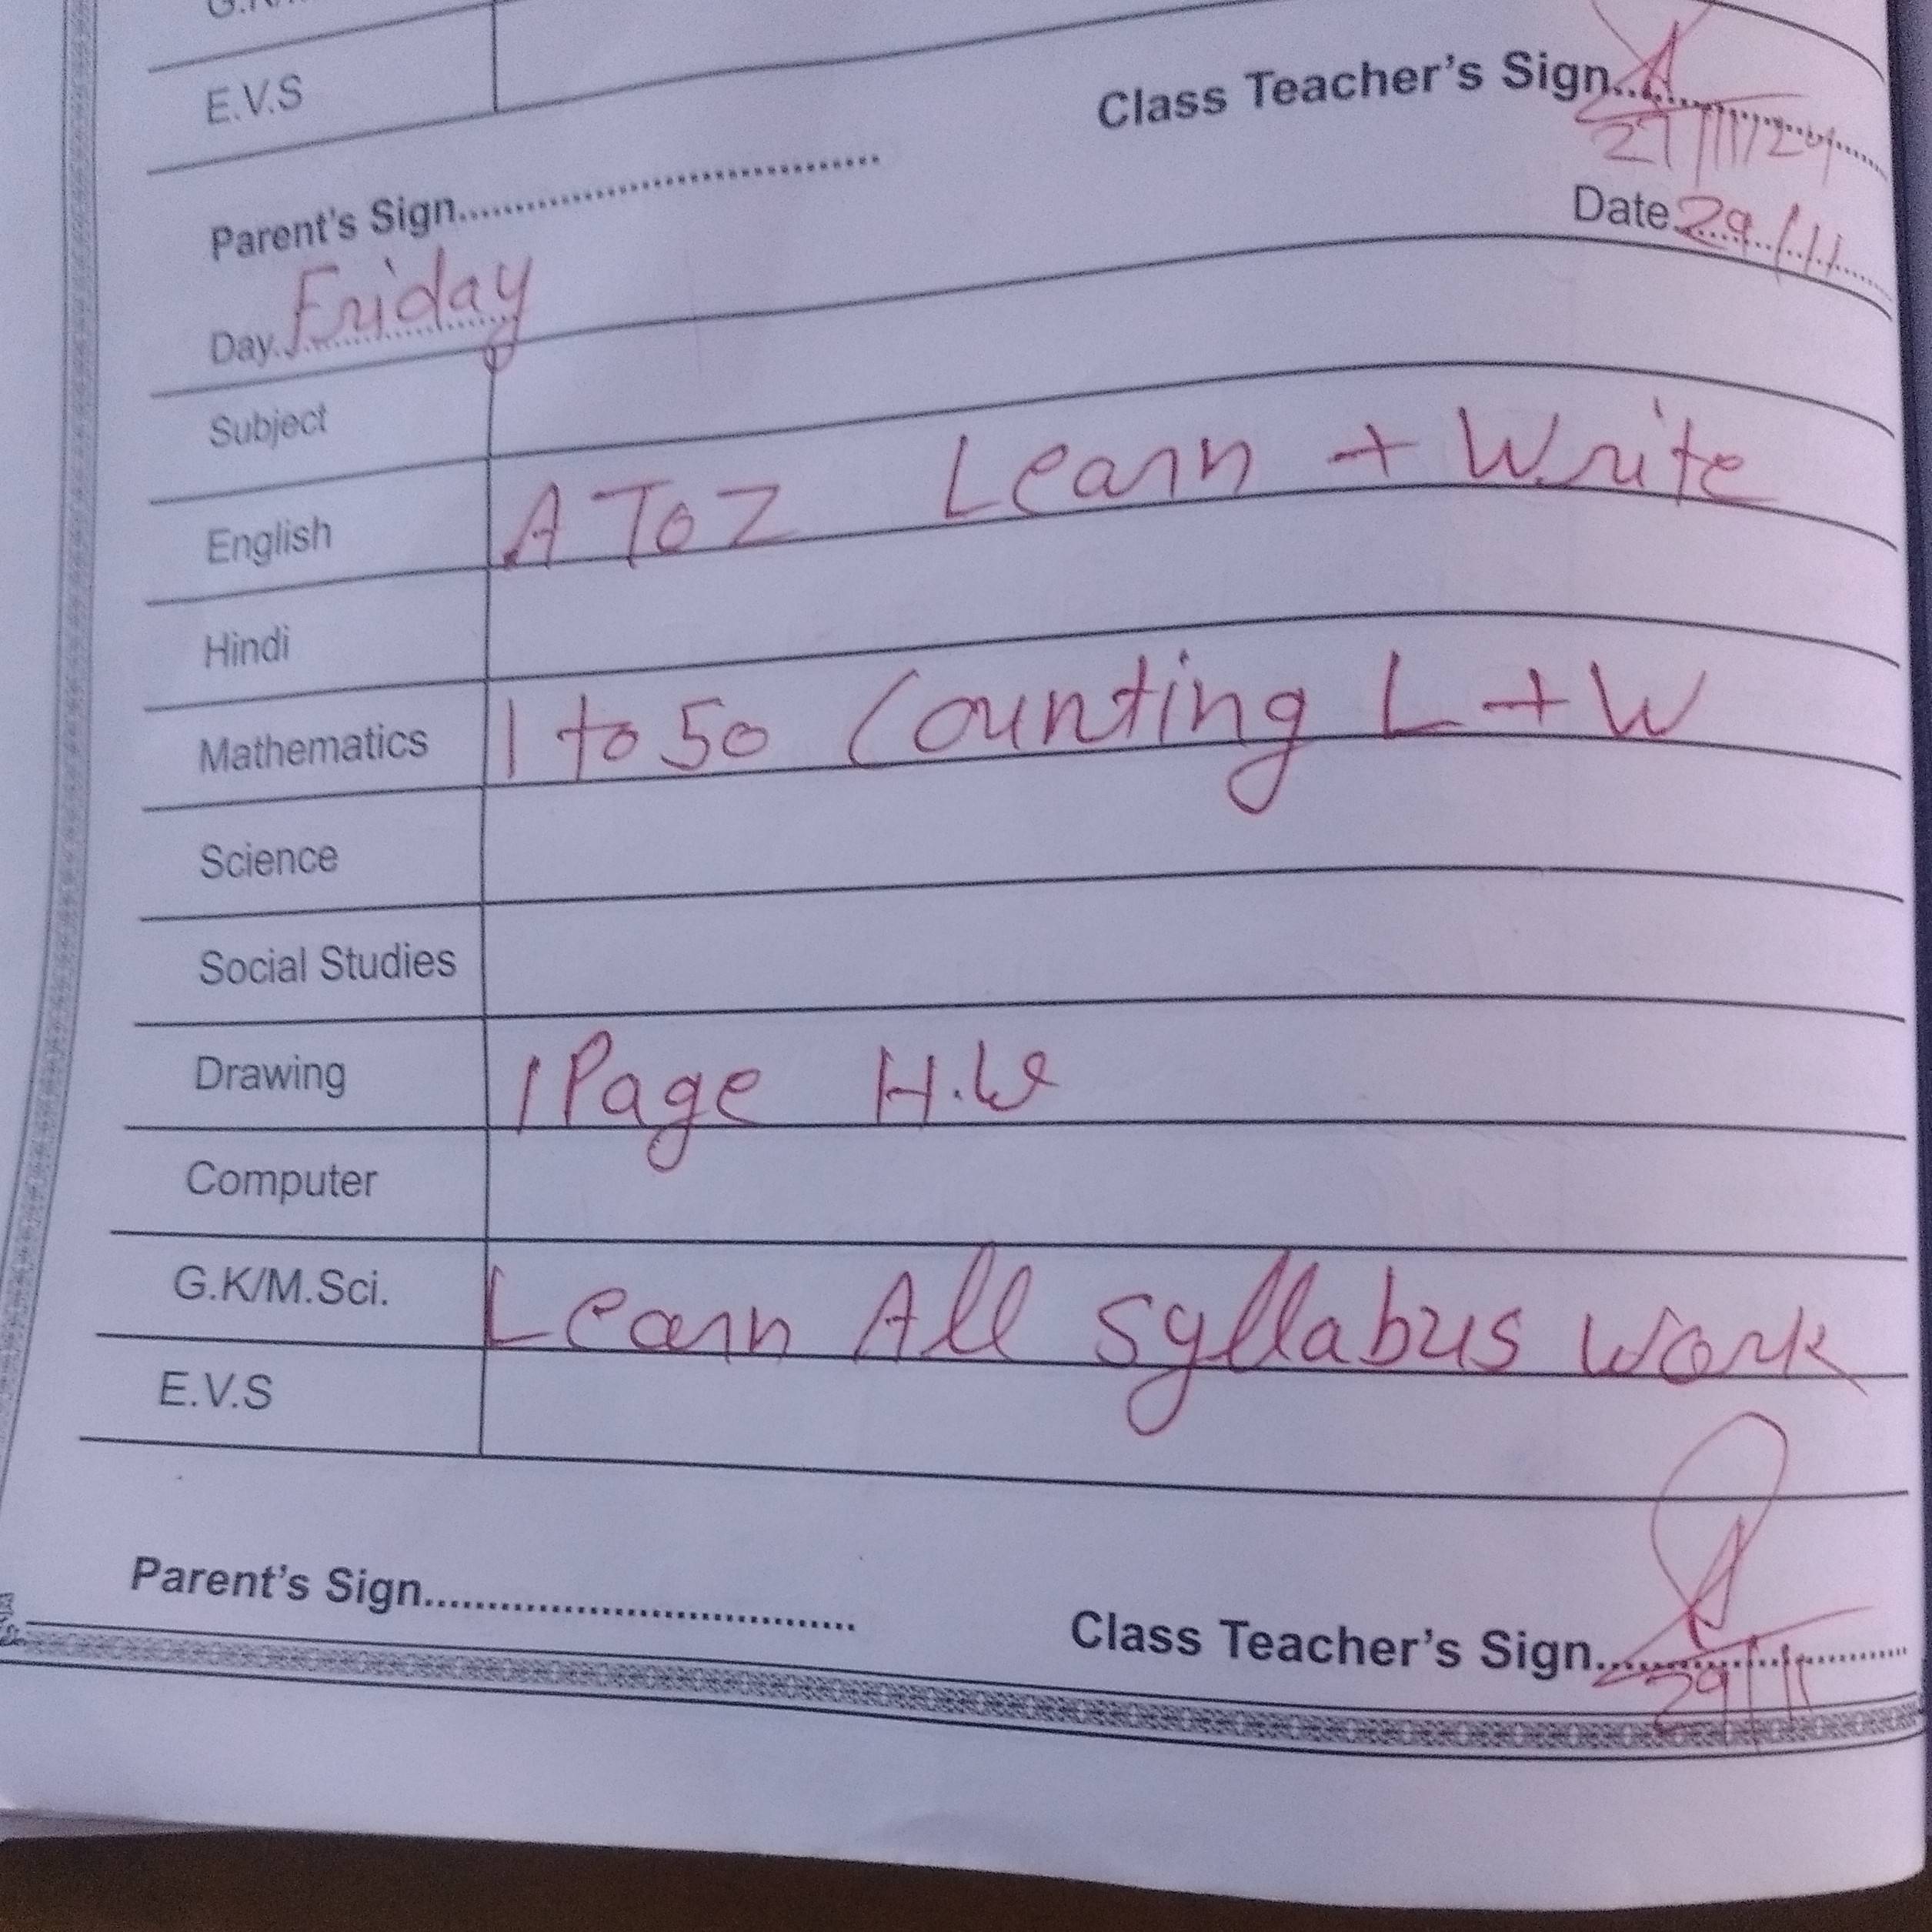 E.V.S
Class Teacher's Sign..............
27/11/24
Parent's Sign..............................
Date 29/11
Day. Friday
Subject
English A To Z Learn + Write
Hindi
Mathematics 1 to 50 Counting L + W
Science
Social Studies
Drawing 1 Page H.W
Computer
G.K/M.Sci. Learn All Syllabus Work
E.V.S
Parent's Sign..............................
Class Teacher's Sign..............
29/11